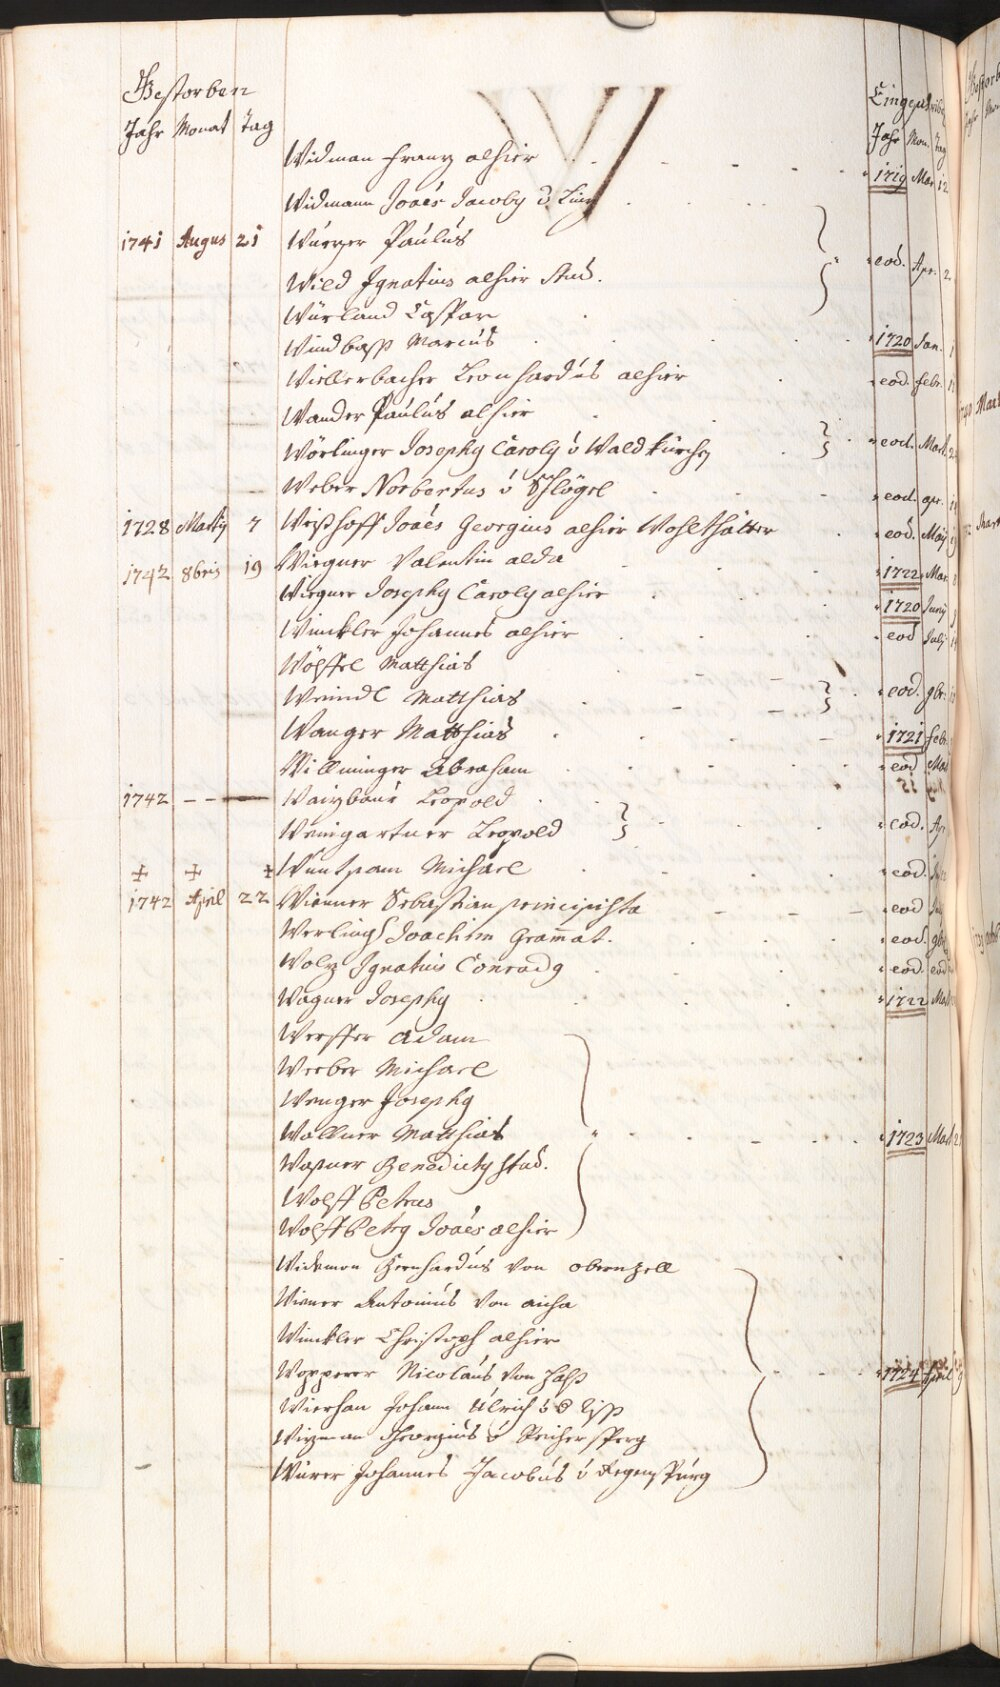 W
Gestorben
Jahr Monat Tag
Eingeschrieben
Jahr Mon. Tag
Widman Frantz alhier 1719 Mar. 12
Widmann Joaes Jacoby v Lintz
1741 Augus 21 Würzer Paulus
Wild Ignatius alhier Stud. eod. Apr. 2
Würland Caspar
Windbass Marcus 1720 Jan. 1
Wiellerbacher Leonhardus alhier eod. febr.
Wander Paulus alhier
Wörlinger Josephy Caroly v Waldkürchen eod. Mart. 2
Weber Norbertus v Schlögel eod. apr.
1728 Martij 7 Weisshoff Joaes Georgius alhier Wohlthätter eod. Maij
1742 8bris 19 Wiegner Valentin alda 1722 Mar. 8
Wiegner Josephy Caroly alhier 1720 Junij 9
Winckler Johannes alhier eod Julij
Wölffel Matthias
Weindl Matthias eod. 9br.
Wanger Matthias 1721 febr.
Willminger Abraham eod Mar
1742 – – — Waizbaur Leopold
Weingartner Leopold eod. Ap
‡ ‡ ‡ Michael eod.
1742 April 22 Wimmer Sebastian principista eod Jul
Werlings Joachim Gramat. eod. 9b
Woltz Ignatius Conrady eod. eod
Wagner Josephy 1722 Ma
Werffer Adam
Weeber Michael
Wenger Josephy
Wallner Matthias 1723 Mart 2
Wasner Benedicty Stud.
Wolff Petrus
Wolff Petry Joaes alhier
Wideman Bernhardus von obernzell
Wiener Antonius von aicha
Winckler Christoph alhier
Wopperer Nicolaus von Halss 1724 April 9
Wierhan Johann Ulrich v d
Witzman Georgius v Reichersperg
Würer Johannes Jacobus v Regenspurg